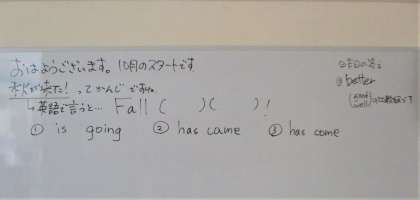 おはようございます。10月のスタートです
秋が来た！ってかんじですね。
↳英語で言うと… Fall (   )(   )！
① is going ② has came ③ has come
昨日の答え
③better
(good well)の比較級です